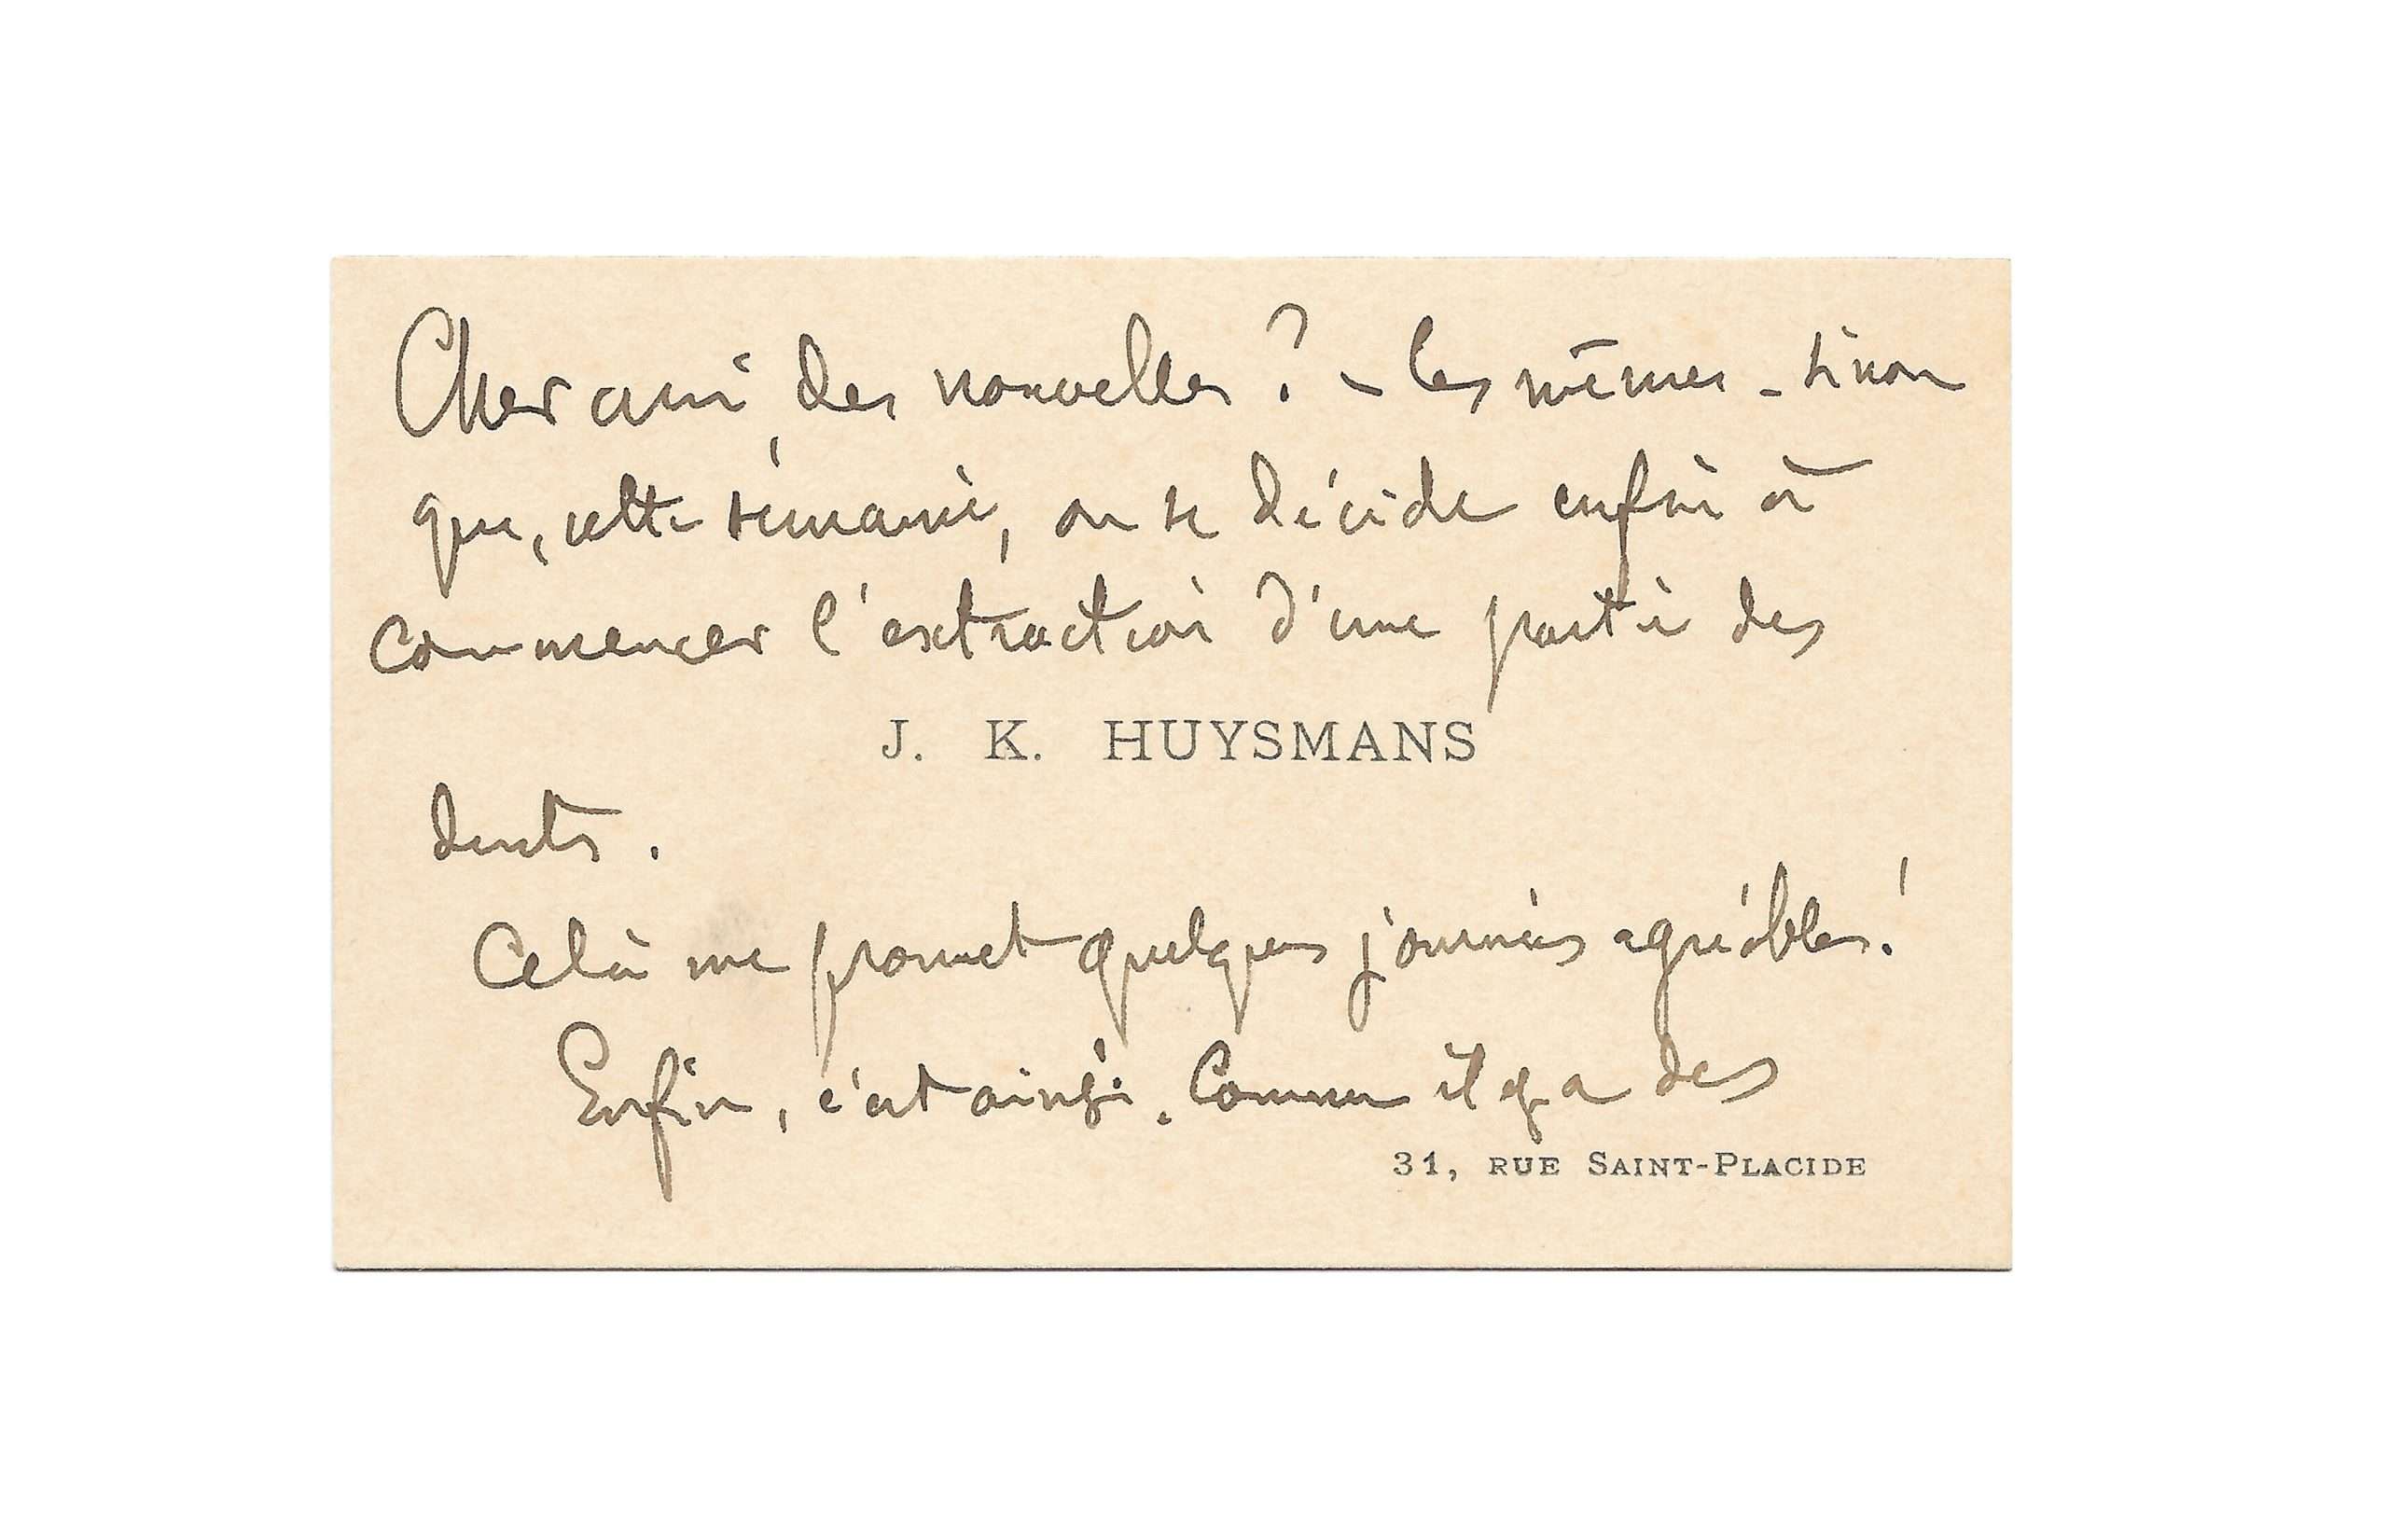 Cher ami, des nouvelles ? - les mêmes - sinon
que, cette semaine, on se décide enfin à
commencer l'extraction d'une partie des
J. K. HUYSMANS
dents.
Celà me promet quelques journées agréables !
Enfin, c'est ainsi. Comme il y a des
31, RUE SAINT-PLACIDE